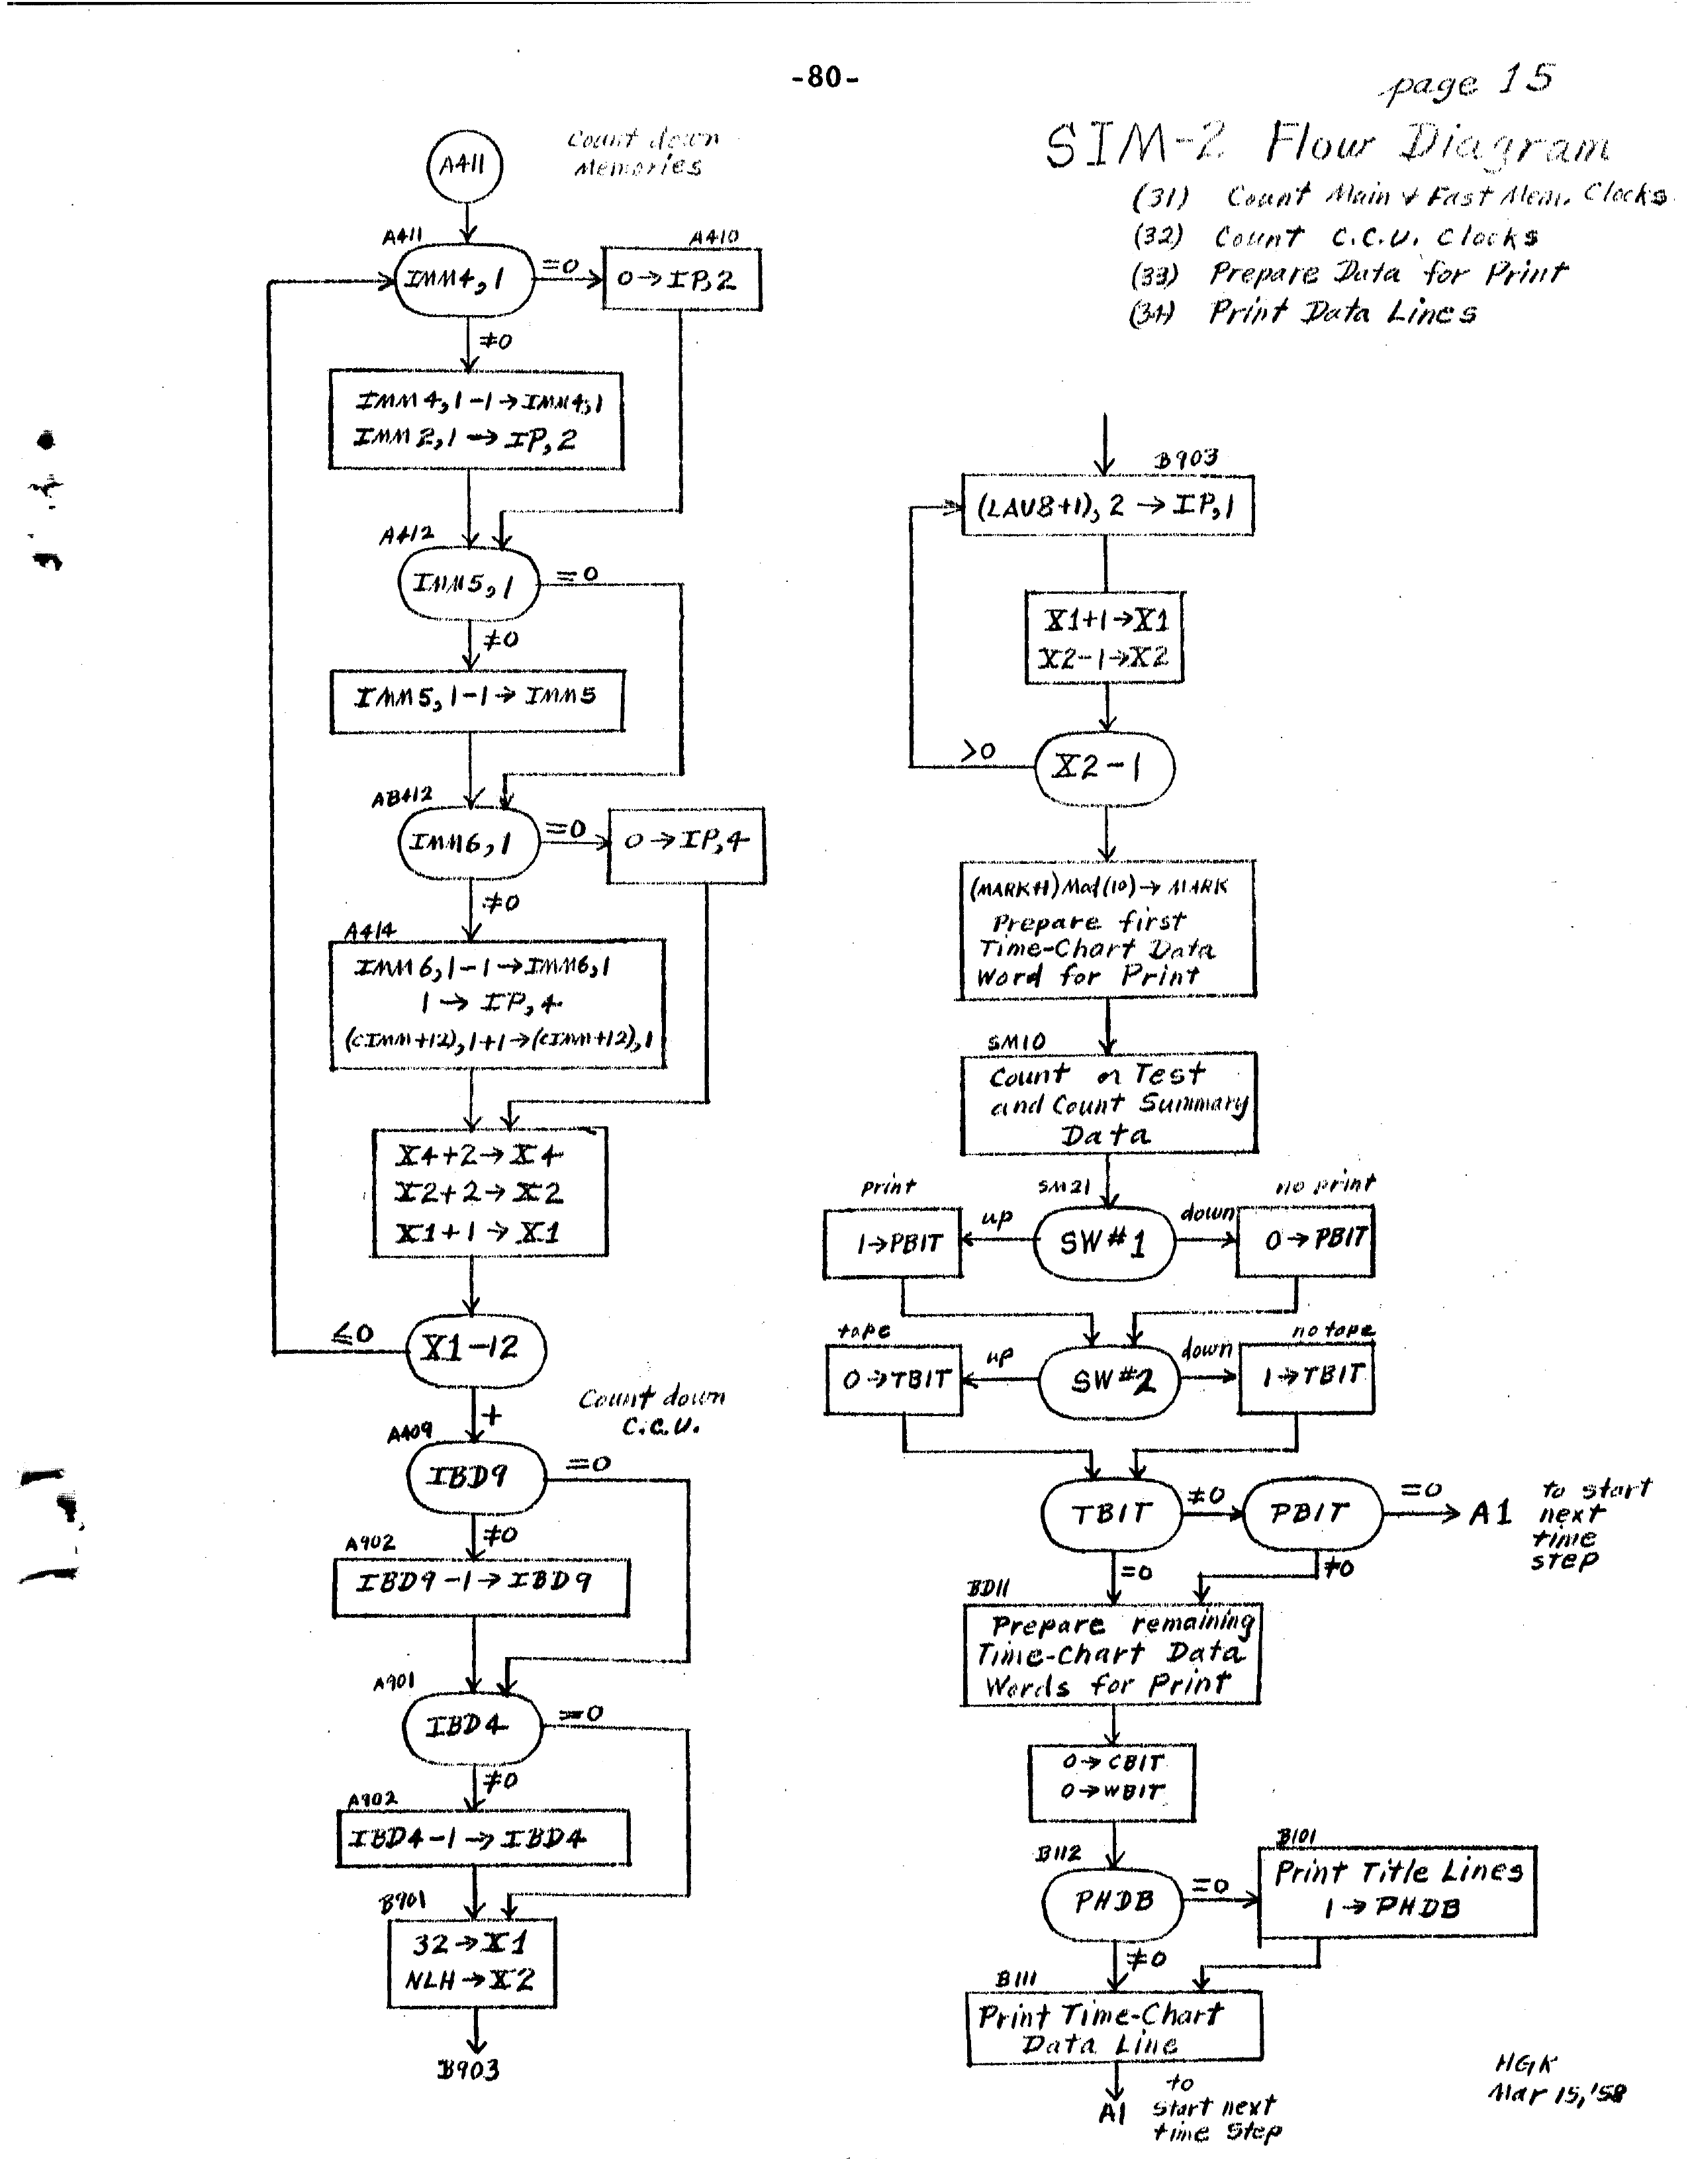 -80-
page 15
SIM-2 Flow Diagram
(31) Count Main & Fast Mem. Clocks
(32) Count C.C.U. Clocks
(33) Prepare Data for Print
(34) Print Data Lines
A411
Count down
Memories
A411
IMM4,1
=0
A410
0→IP,2
≠0
IMM4,1-1→IMM4,1
IMM2,1→IP,2
A412
IMM5,1
=0
≠0
IMM5,1-1→IMM5
AB412
IMM6,1
=0
0→IP,4
≠0
A414
IMM6,1-1→IMM6,1
1→IP,4
(CIMM+12),1+1→(CIMM+12),1
X4+2→X4
X2+2→X2
X1+1→X1
≤0
X1-12
+
Count down
C.C.U.
A409
IBD9
=0
≠0
A902
IBD9-1→IBD9
A901
IBD4
=0
≠0
A902
IBD4-1→IBD4
B901
32→X1
NLH→X2
B903
B903
(LAU8+1),2→IP,1
X1+1→X1
X2-1→X2
>0
X2-1
(MARK+1)Mod(10)→MARK
Prepare first
Time-Chart Data
Word for Print
SM10
Count or Test
and Count Summary
Data
print
SM21
no print
1→PBIT
up
SW#1
down
0→PBIT
tape
no tape
0→TBIT
up
SW#2
down
1→TBIT
TBIT
≠0
PBIT
=0
A1
to start
next
time
step
=0
≠0
BD11
Prepare remaining
Time-Chart Data
Words for Print
0→CBIT
0→WBIT
B112
PHDB
=0
B101
Print Title Lines
1→PHDB
≠0
B111
Print Time-Chart
Data Line
A1
to
start next
time step
HGK
Mar 15, '58